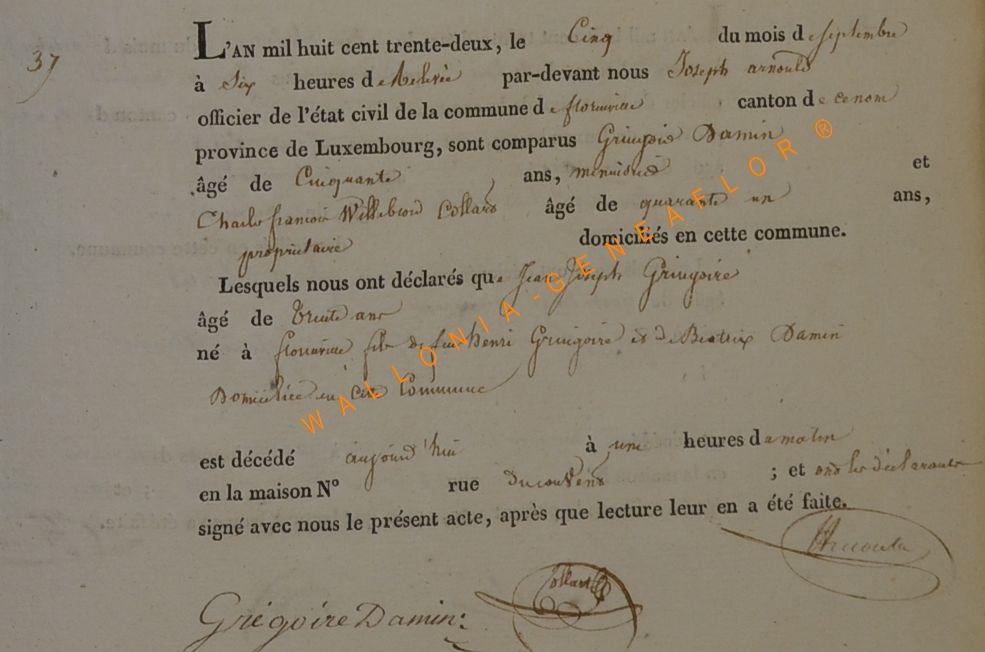 37
L'AN mil huit cent trente-deux, le Cinq du mois de septembre
à Six heures de Relevée par-devant nous Joseph arnould
officier de l'état civil de la commune de florenville canton de
province de Luxembourg, sont comparus Gringoire Damin
âgé de Cinquante ans, menuisier et
Charles francois Willebrord Collard âgé de quarante un ans,
propriétaire domiciliés en cette commune.
Lesquels nous ont déclarés que Jean Joseph Gringoire
âgé de trente ans
né à florenville fils de feu henri Gringoire et de Beatrix Damin
Domiciliée en cette Commune
est décédé aujourd'hui à une heures du matin
en la maison N° rue du couvent ; et ont les déclarants
signé avec nous le présent acte, après que lecture leur en a été faite.
Grégoire Damin Collard
WALLONIA-GENEAFLOR ®